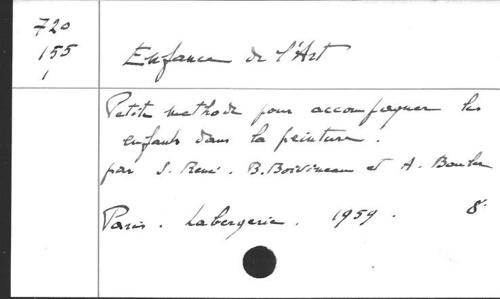 720
155
1
Enfance de l'Art
Petite méthode pour accompagner les
enfants dans la peinture.
par S. René. B. Boivineau et A. Boulu
Paris. Labergerie. 1959. 8°